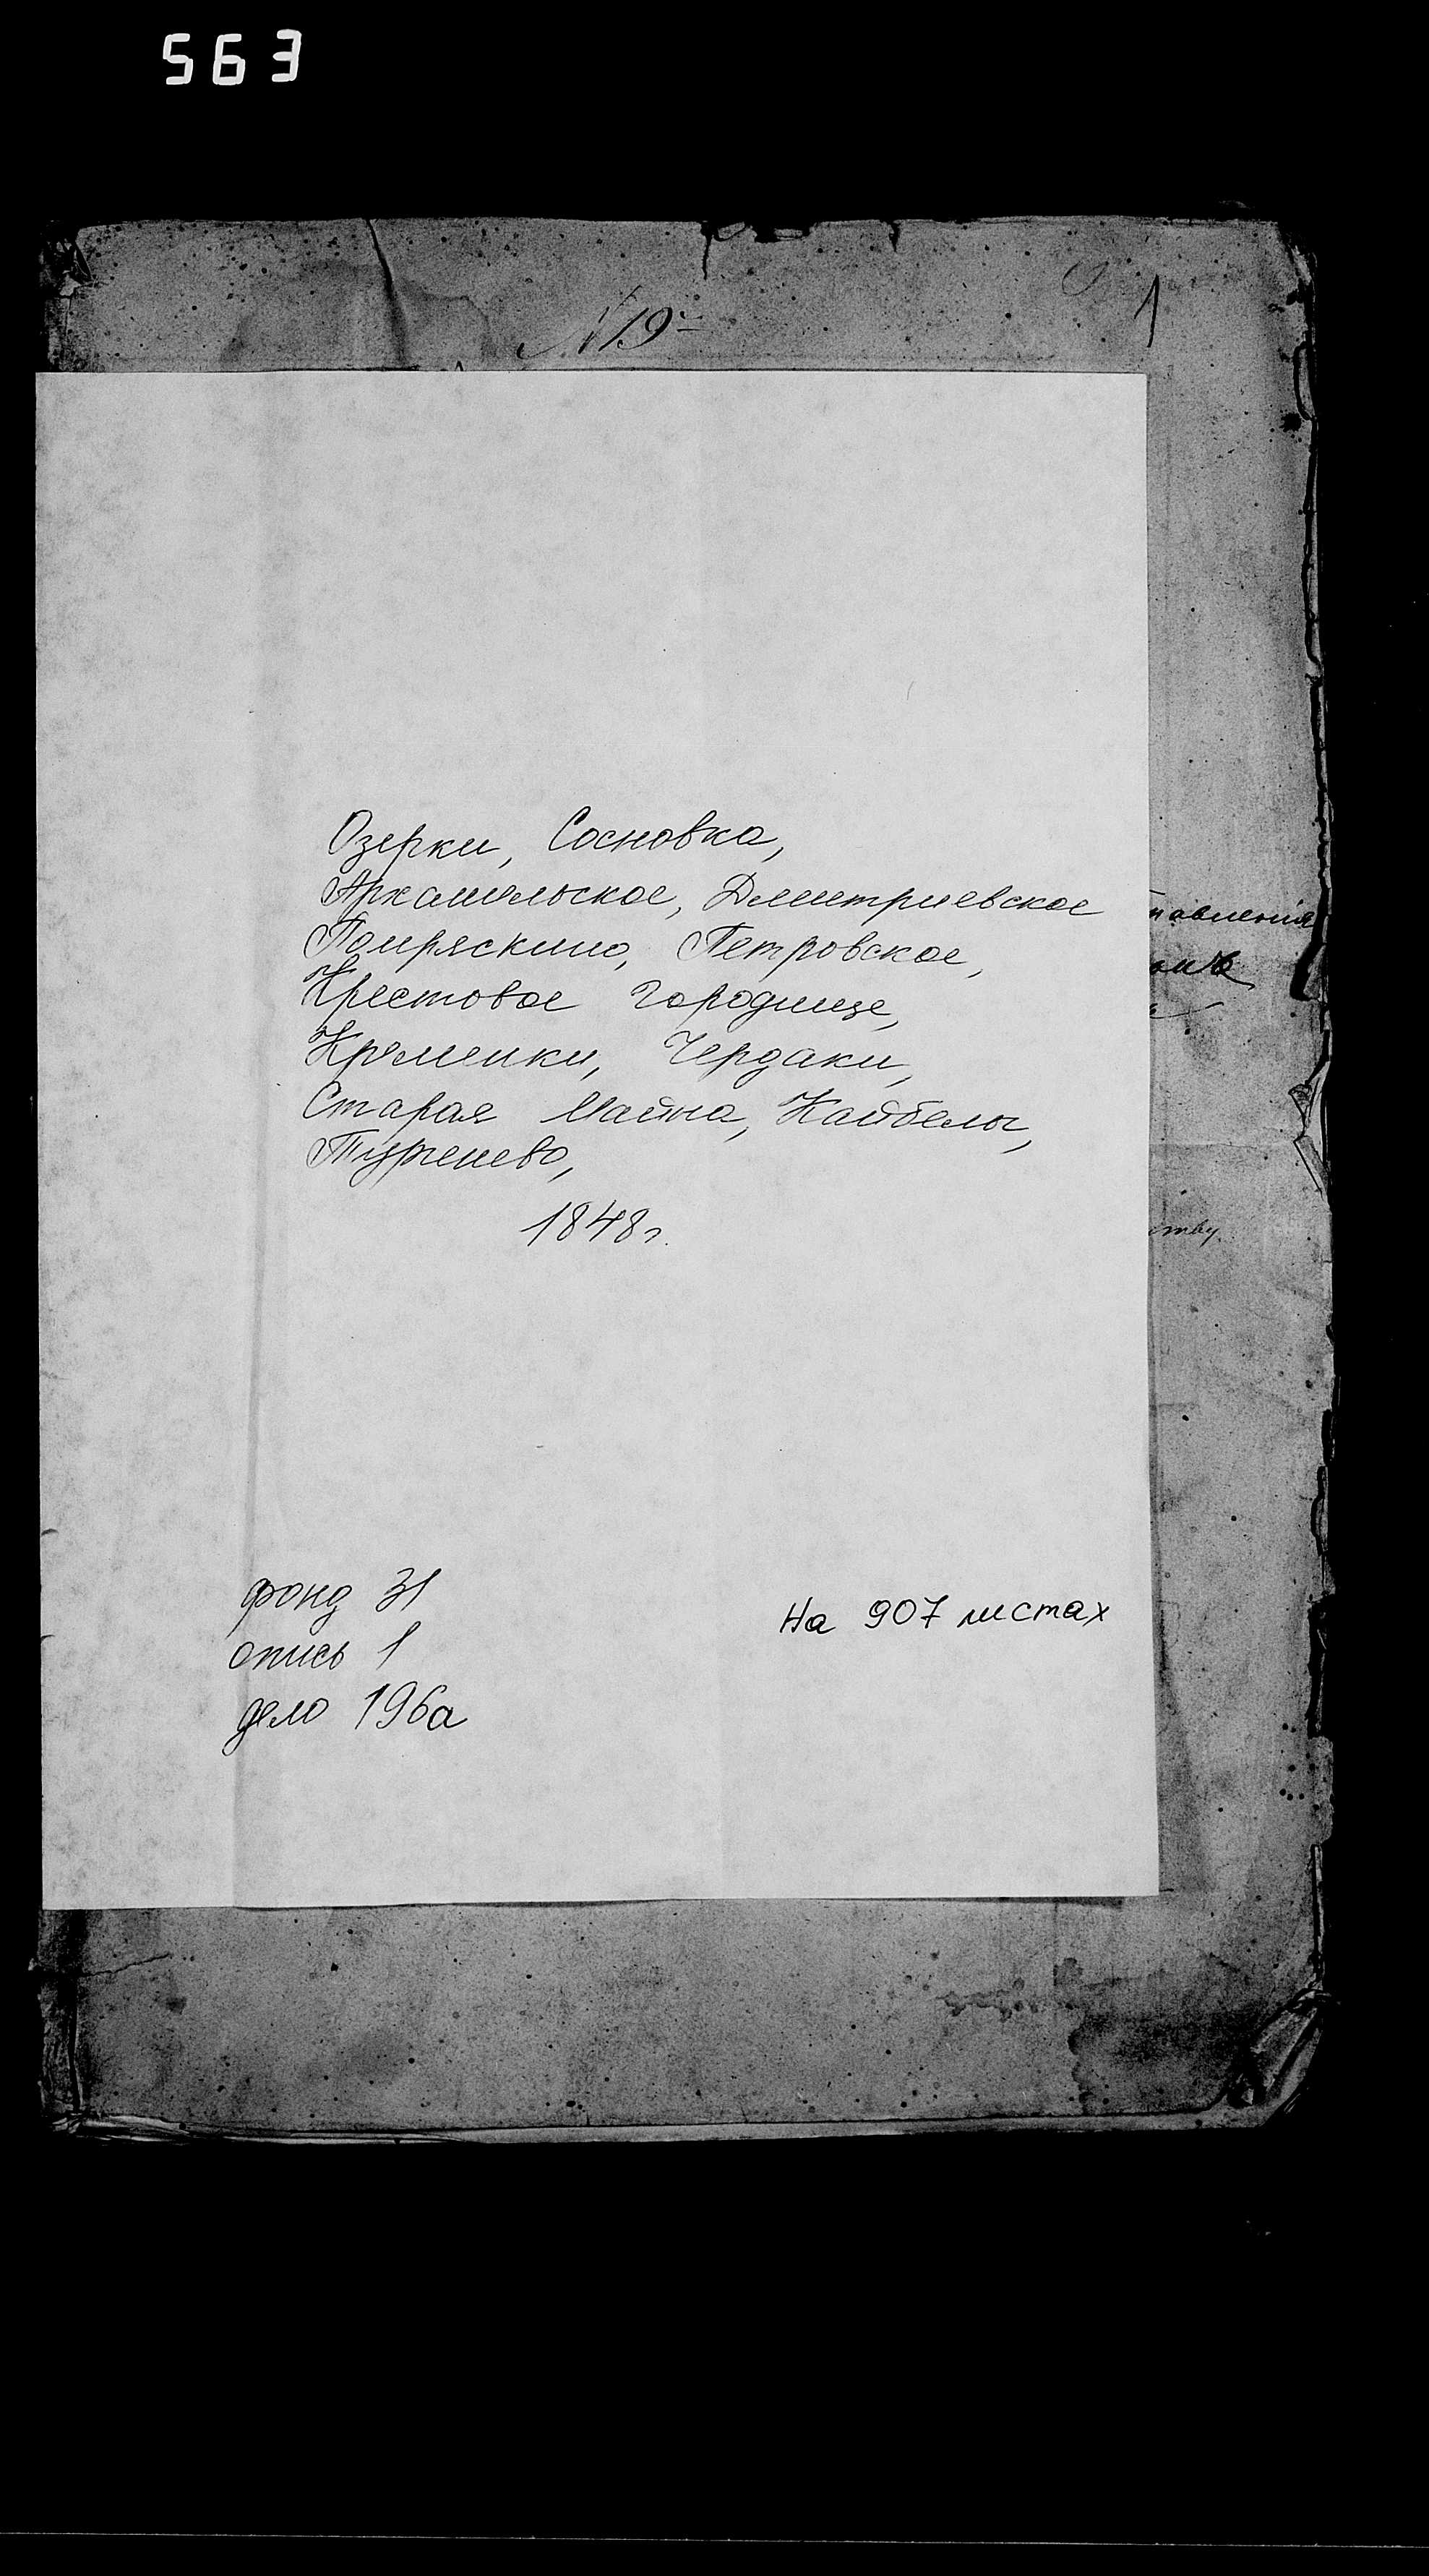 563
N 19
1
Озерки, Сосновка,
Архангельское, Дмитриевское
Помряскино, Петровское,
Крестовое Городище,
Кременки, Чердаки,
Старая Майна, Кайбелы,
Тургенево,
1848 г.
фонд 31
опись 1
дело 196а
На 907 листах